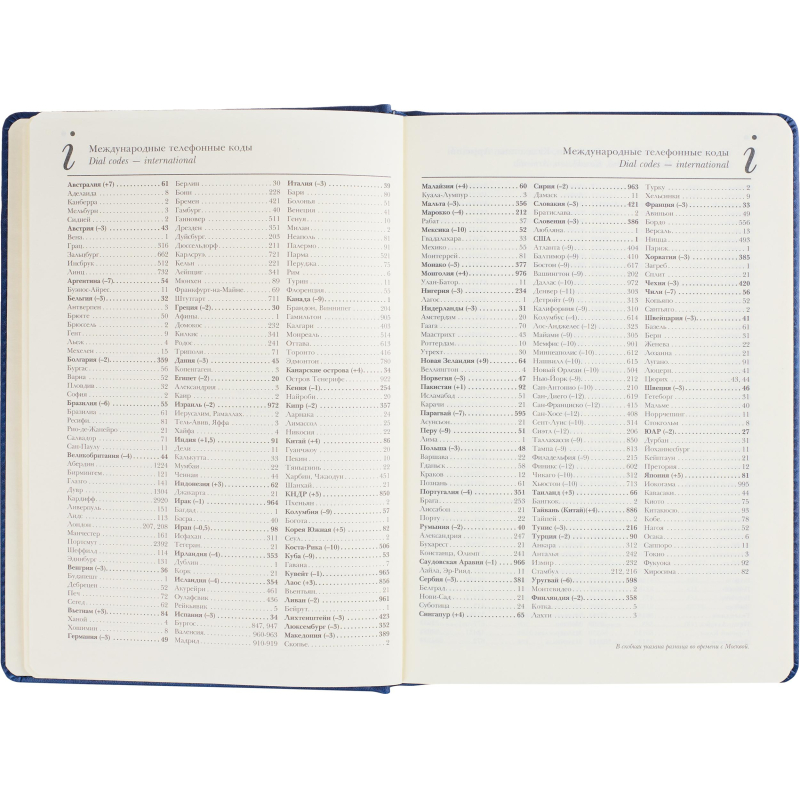 i
Международные телефонные коды
Dial codes — international
Австралия (+7) 61
Аделаида 8
Канберра 2
Мельбурн 3
Сидней 2
Австрия (–3) 43
Вена 1
Грац 316
Зальцбург 662
Инсбрук 512
Линц 732
Аргентина (–7) 54
Буэнос-Айрес 11
Бельгия (–3) 32
Антверпен 3
Брюгге 50
Брюссель 2
Гент 9
Льеж 4
Мехелен 15
Болгария (–2) 359
Бургас 56
Варна 52
Пловдив 32
София 2
Бразилия (–6) 55
Бразилиа 61
Ресифи 81
Рио-де-Жанейро 21
Салвадор 71
Сан-Паулу 11
Великобритания (–4) 44
Абердин 1224
Бирмингем 121
Глазго 141
Дувр 1304
Кардифф 2920
Ливерпуль 151
Лидс 113
Лондон 207, 208
Манчестер 161
Портсмут 2392
Шеффилд 114
Эдинбург 131
Венгрия (–3) 36
Будапешт 1
Дебрецен 52
Печ 72
Сегед 62
Вьетнам (+3) 84
Ханой 4
Хошимин 8
Германия (–3) 49
Берлин 30
Бонн 228
Бремен 421
Гамбург 40
Ганновер 511
Дрезден 351
Дуйсбург 203
Дюссельдорф 211
Карлсруэ 721
Кельн 221
Лейпциг 341
Мюнхен 89
Франкфурт-на-Майне 69
Штутгарт 711
Греция (–2) 30
Афины 1
Домокос 232
Килькис 341
Родос 241
Триполи 71
Дания (–3) 45
Копенгаген 3
Египет (–2) 20
Александрия 3
Каир 2
Израиль (–2) 972
Иерусалим, Рамаллах 2
Тель-Авив, Яффа 3
Хайфа 4
Индия (+1,5) 91
Дели 11
Калькутта 33
Мумбаи 22
Ченнаи 44
Индонезия (+3) 62
Джакарта 21
Ирак (–1) 964
Багдад 1
Басра 40
Иран (–0,5) 98
Исфахан 311
Тегеран 21
Ирландия (–4) 353
Дублин 1
Корк 21
Исландия (–4) 354
Акурейри 461
Оулафсвик 436
Рейкьявик 5
Испания (–3) 34
Бургос 847, 947
Валенсия 960-963
Мадрид 910-919
Италия (–3) 39
Бари 80
Болонья 51
Венеция 41
Генуя 10
Милан 2
Неаполь 81
Палермо 91
Парма 521
Перуджа 75
Рим 6
Турин 11
Флоренция 55
Канада (–9) 1
Брандон, Виннипег 204
Гамильтон 905
Калгари 403
Монреаль 514
Оттава 613
Торонто 416
Эдмонтон 780
Канарские острова (–4) 34
Остров Тенерифе 922
Кения (–1) 254
Найроби 20
Кипр (–2) 357
Ларнака 24
Лимассол 25
Никосия 22
Китай (+4) 86
Гуанчжоу 20
Пекин 10
Тяньцзинь 22
Харбин, Чжаодун 451
Шанхай 21
КНДР (+5) 850
Пхеньян 2
Колумбия (–9) 57
Богота 1
Корея Южная (+5) 82
Сеул 2
Коста-Рика (–10) 506
Куба (–9) 53
Гавана 7
Кувейт (–1) 965
Лаос (+3) 856
Вьентьян 21
Ливан (–2) 961
Бейрут 1
Лихтенштейн (–3) 423
Люксембург (–3) 352
Македония (–3) 389
Скопье 2
Международные телефонные коды
Dial codes — international
i
Малайзия (+4) 60
Куала-Лумпур 3
Мальта (–3) 356
Марокко (–4) 212
Рабат 37
Мексика (–10) 52
Гвадалахара 33
Мехико 55
Монтеррей 81
Монако (–3) 377
Монголия (+4) 976
Улан-Батор 11
Нигерия (–3) 234
Лагос 1
Нидерланды (–3) 31
Амстердам 20
Гаага 70
Маастрихт 43
Роттердам 10
Утрехт 30
Новая Зеландия (+9) 64
Веллингтон 4
Норвегия (–3) 47
Пакистан (+1) 92
Исламабад 51
Карачи 21
Парагвай (–7) 595
Асунсьон 21
Перу (–9) 51
Лима 1
Польша (–3) 48
Варшава 22
Гданьск 58
Краков 12
Познань 61
Португалия (–4) 351
Брага 253
Лиссабон 21
Порту 22
Румыния (–2) 40
Александрия 247
Бухарест 21
Констанца, Олимп 241
Саудовская Аравия (–1) 966
Лайла, Эр-Рияд 11
Сербия (–3) 381
Белград 11
Нови-Сад 21
Суботица 24
Сингапур (+4) 65
Сирия (–2) 963
Дамаск 11
Словакия (–3) 421
Братислава 2
Словения (–3) 386
Любляна 1
США 1
Атланта (–9) 404
Балтимор (–9) 410
Бостон (–9) 617
Вашингтон (–9) 202
Даллас (–10) 972
Денвер (–11) 303
Детройт (–9) 313
Калифорния (–9) 310
Колумбус (–9) 614
Лос-Анджелес (–12) 323
Майами (–9) 305
Мемфис (–10) 901
Миннеаполис (–10) 612
Нашвилл (–10) 615
Новый Орлеан (–10) 504
Нью-Йорк (–9) 212
Сан-Антонио (–10) 210
Сан-Диего (–12) 619
Сан-Франциско (–12) 415
Сан-Хосе (–12) 408
Сент-Луис (–10) 314
Сиэтл (–12) 206
Таллахасси (–9) 850
Тампа (–9) 813
Филадельфия (–9) 215
Финикс (–12) 602
Чикаго (–10) 312
Хьюстон (–10) 713
Таиланд (+3) 66
Бангкок 2
Тайвань (Китай)(+4) 886
Тайпей 2
Тунис (–3) 216
Турция (–2) 90
Анкара 312
Анталья 242
Измир 232
Стамбул 212, 216
Уругвай (–6) 598
Монтевидео 2
Финляндия (–2) 358
Котка 5
Лахти 3
Турку 2
Хельсинки 9
Франция (–3) 33
Авиньон 49
Бордо 556
Версаль 13
Ницца 493
Париж 1
Хорватия (–3) 385
Загреб 1
Сплит 21
Чехия (–3) 420
Чили (–7) 56
Копьяпо 52
Сантьяго 2
Швейцария (–3) 41
Базель 61
Берн 31
Женева 22
Лозанна 21
Лугано 91
Люцерн 41
Цюрих 43, 44
Швеция (–3) 46
Гетеборг 31
Мальме 40
Норрчепинг 11
Стокгольм 8
ЮАР (–2) 27
Дурбан 31
Йоханнесбург 11
Кейптаун 21
Претория 12
Япония (+5) 81
Иокогама 993
Канадзава 44
Киото 75
Китакюсю 93
Кобе 78
Нагоя 52
Осака 6
Саппоро 11
Токио 3
Фукуока 92
Хиросима 82
В скобках указана разница во времени с Москвой.